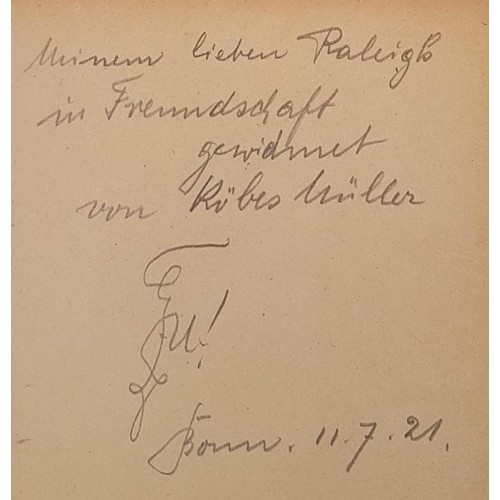 Meinem lieben Raleigh
in Freundschaft
gewidmet
von Köbes Müller
Bonn. 11.7.21.